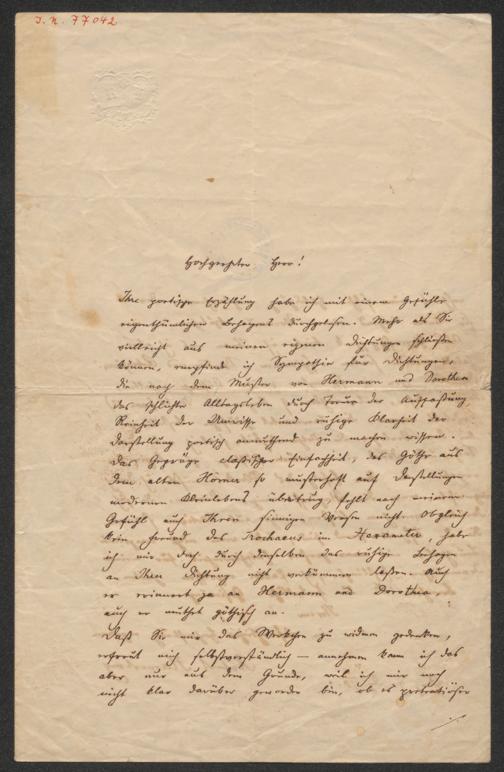 J. N. 77042
Hochgeehrter Herr!
Ihre poetische Erzählung habe ich mit einem Gefühle
eigenthümlichen Behagens durchgelesen. Mehr als Sie
vielleicht aus meinen eigenen Dichtungen schließen
können, empfinde ich Sympathie für Dichtungen,
die nach dem Muster von Hermann und Dorothea
das schlichte Alltagsleben durch Treue der Auffassung,
Reinheit der Umrisse und ruhige Klarheit der
Darstellung poetisch anmuthend zu machen wissen.
Das Gepräge classischer Einfachheit, das Göthe aus
dem alten Homer so musterhaft auf Darstellungen
modernen Kleinlebens übertrug, fehlt nach meinem
Gefühl auch Ihren sinnigen Versen nicht. Obgleich
kein Freund des Trochaeus im Hexameter, habe
ich mir doch durch denselben das ruhige Behagen
an Ihrer Dichtung nicht verkümmern lassen. Auch
er erinnert ja an Hermann und Dorothea,
auch er muthet göthisch an.
Daß Sie mir das Werkchen zu widmen gedenken,
erfreut mich selbstverständlich — annehmen kann ich das
aber nur aus dem Grunde, weil ich mir noch
nicht klar darüber geworden bin, ob es prätentiöser